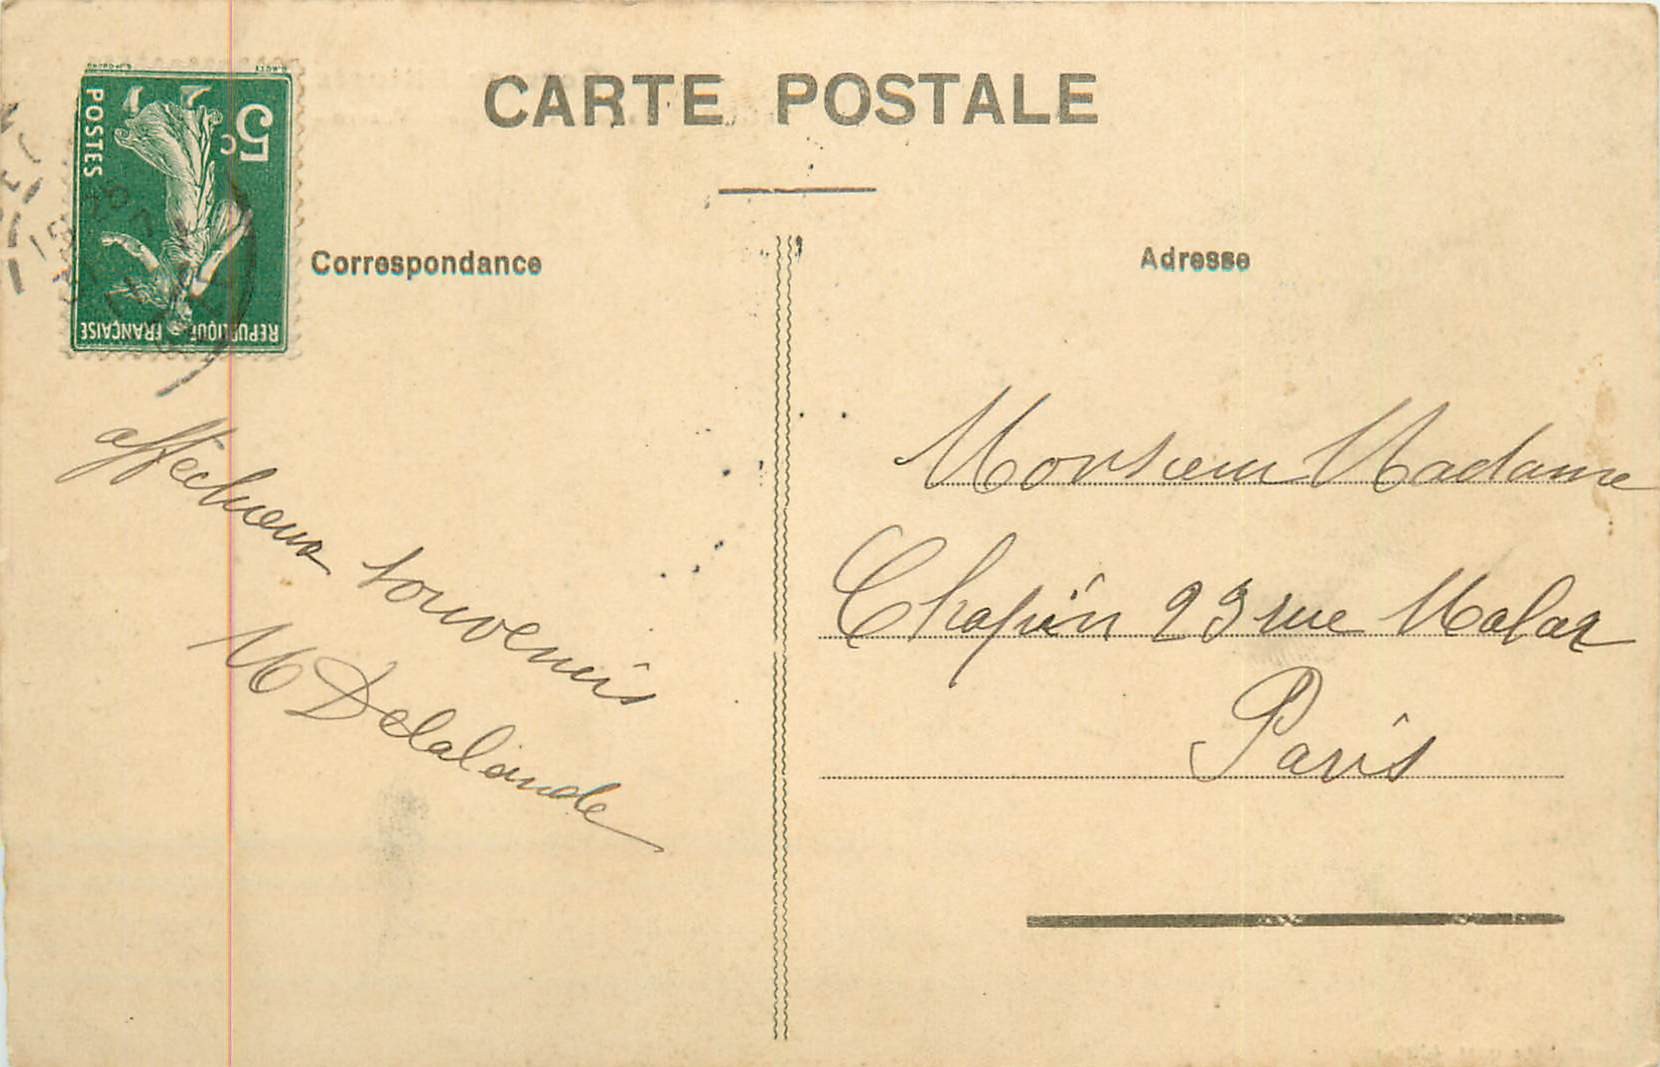 CARTE POSTALE
Correspondance
Adresse
5c
POSTES
REPUBLIQUE FRANÇAISE
affectueux souvenirs
M Delalande
Monsieur Madame
Chapin 23 rue Malar
Paris